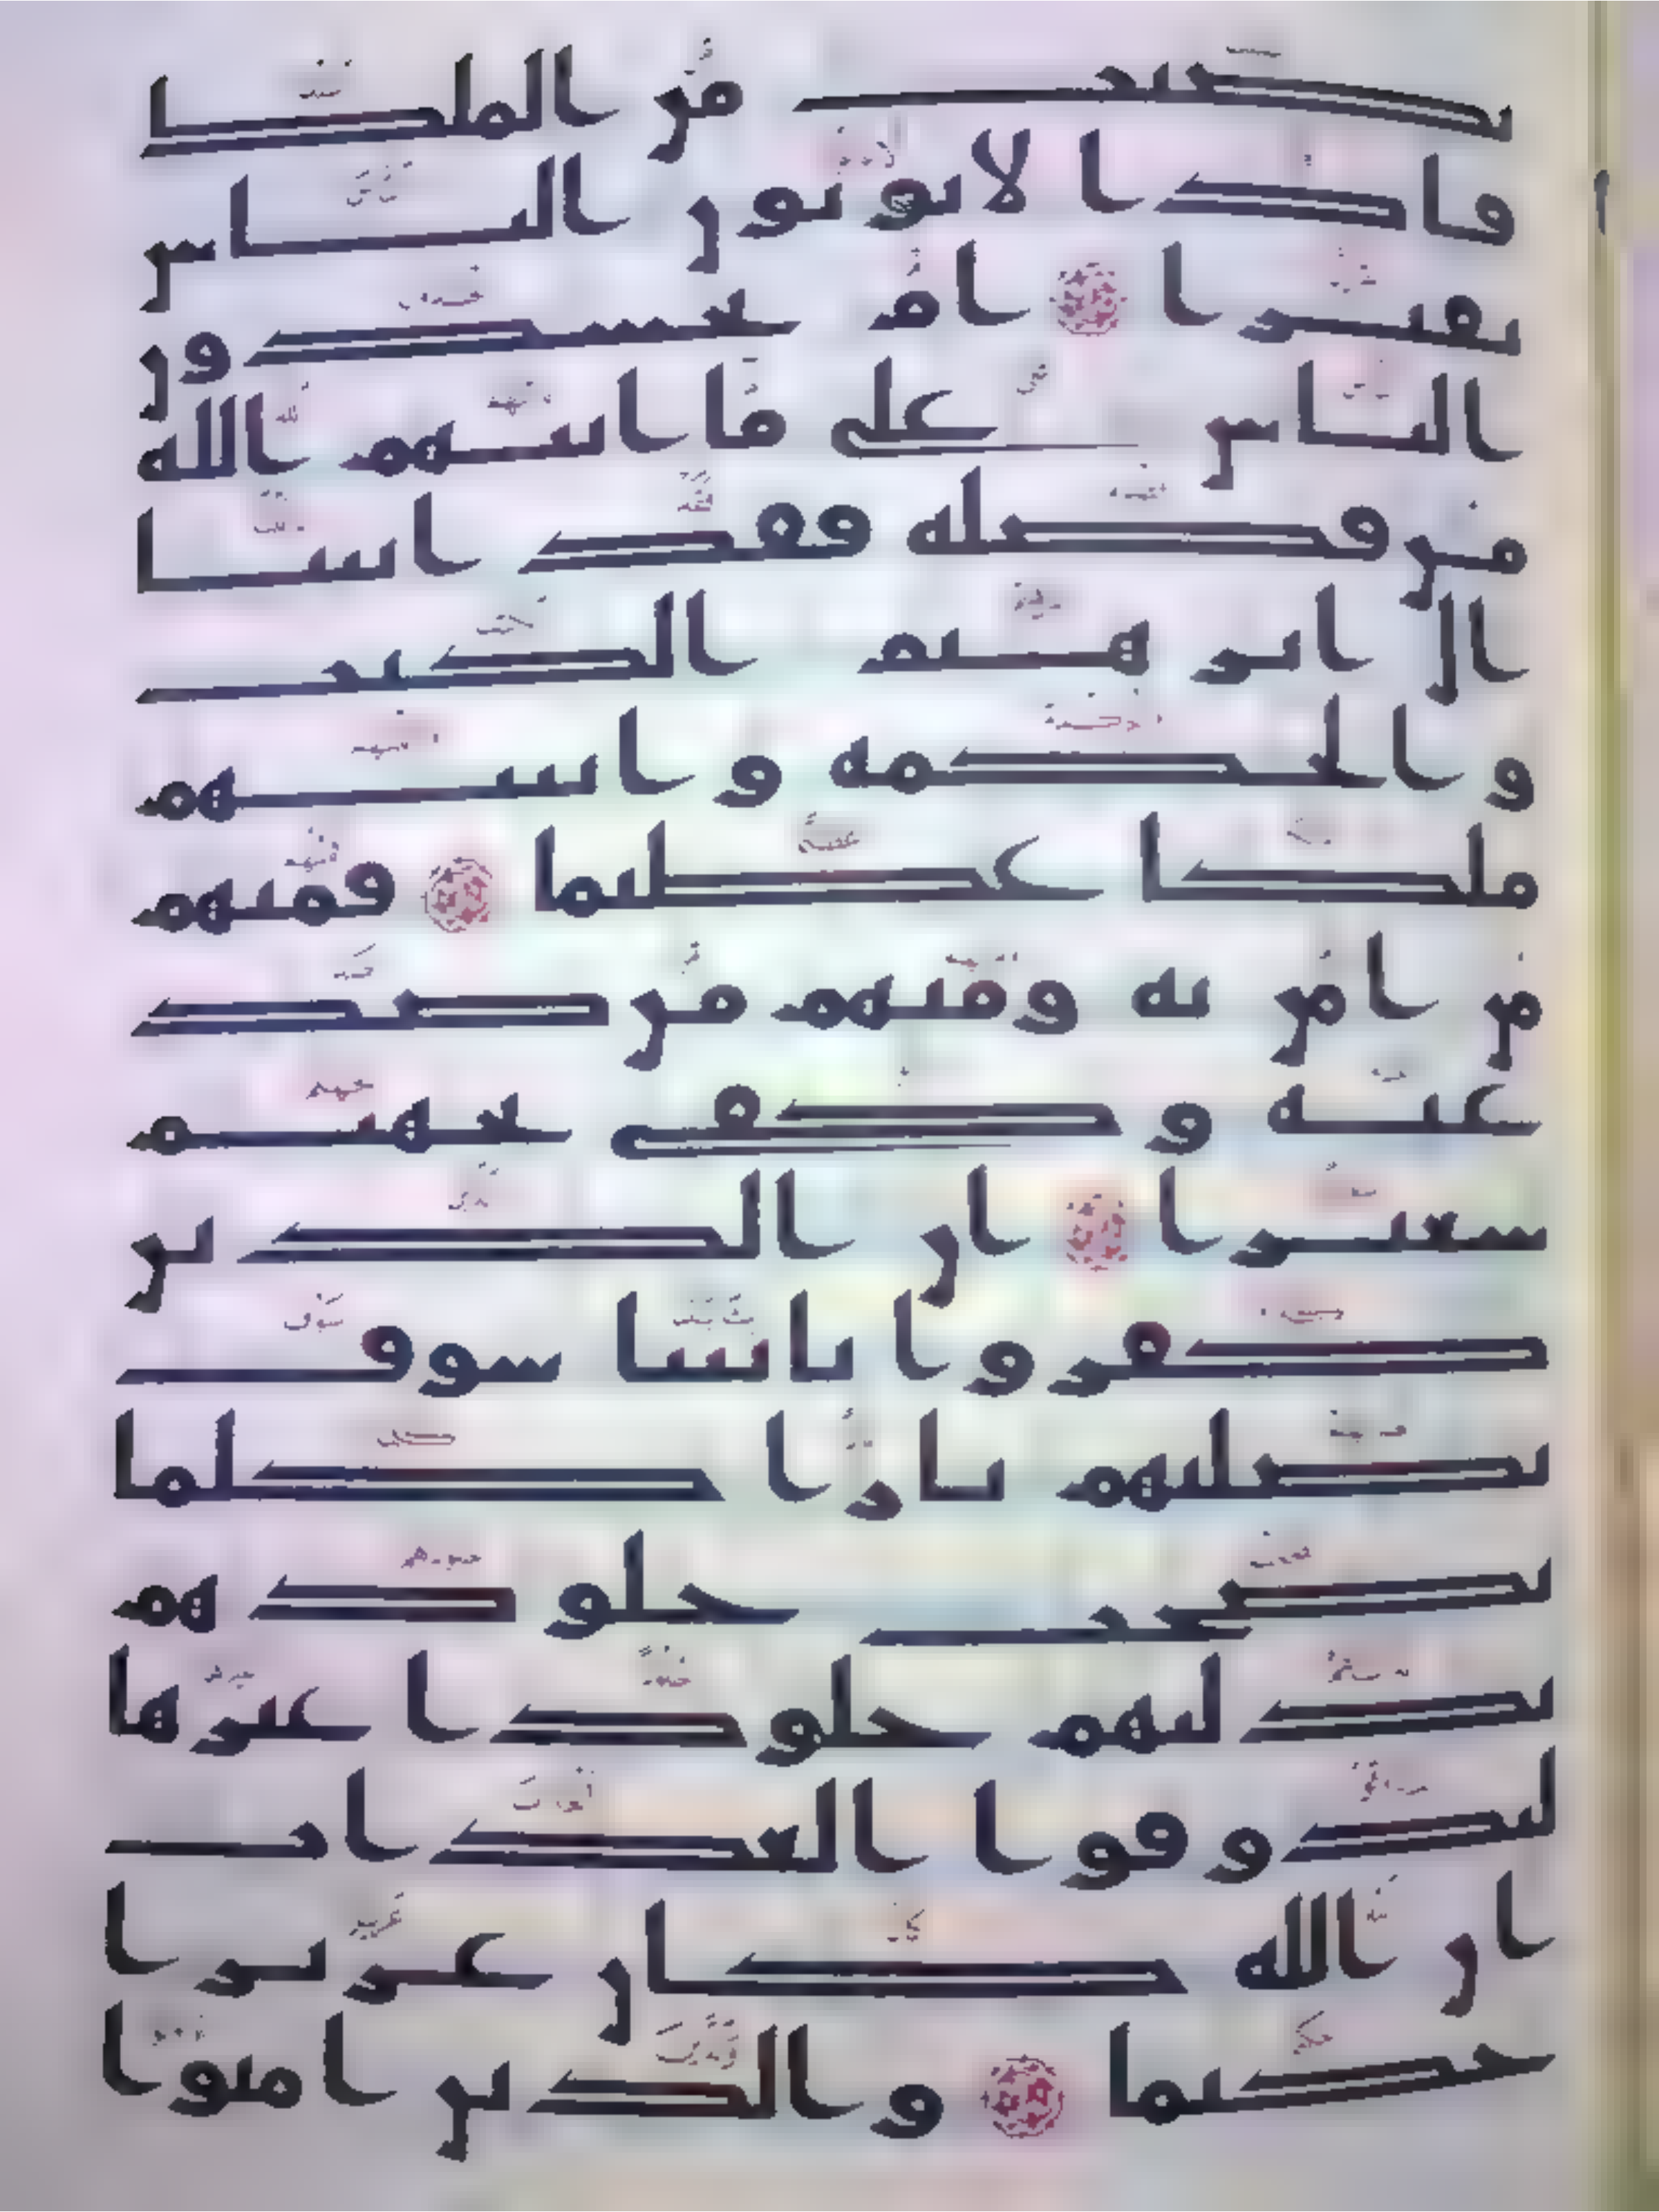 نصيب من الملك
فاذا لا يوتون الناس
نقيرا ام يحسدون
الناس على ما اتيهم الله
من فضله فقد اتينا
ال ابرهيم الكتب
والحكمة واتينهم
ملكا عظيما فمنهم
من امن به ومنهم من صد
عنه وكفى بجهنم
سعيرا ان الذين
كفروا بايتنا سوف
نصليهم نارا كلما
نضجت جلودهم
بدلنهم جلودا غيرها
ليذوقوا العذاب
ان الله كان عزيزا
حكيما والذين امنوا